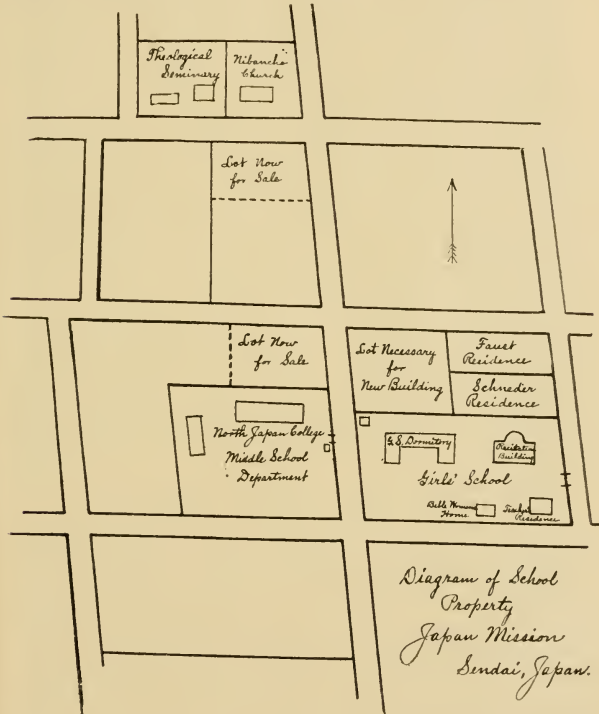 Theological
Seminary
Nibancho
Church
Lot Now
for Sale
Lot Now
for Sale
Lot Necessary
for
New Building
Faust
Residence
Schneder
Residence
North Japan College
Middle School
Department
G.S. Dormitory
Recitation
Building
Girls' School
Bible Womens
Home
Residence
Diagram of School
Property
Japan Mission
Sendai, Japan.